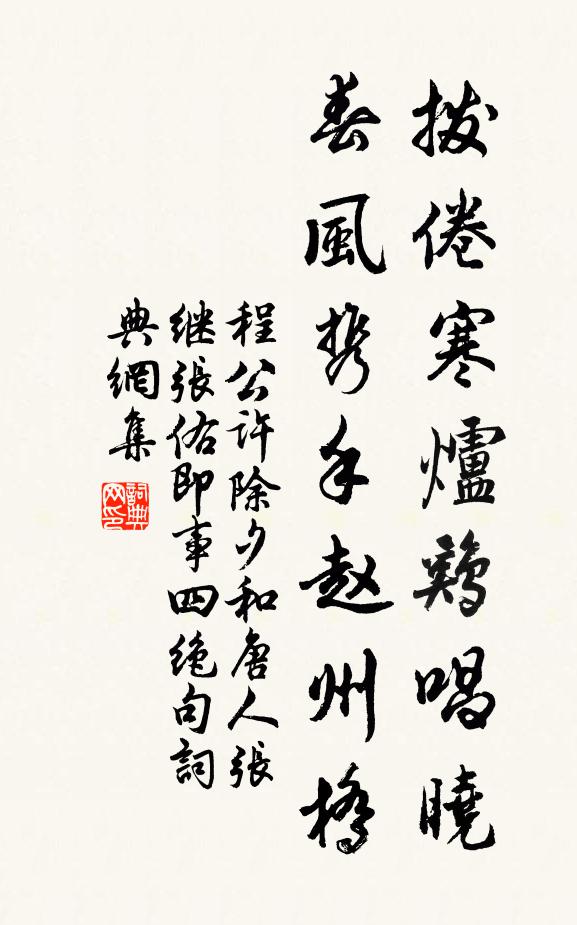 拨倦寒爐鷄唱曉
春風携手赵州橋
程公許除夕和唐人張
继張佑即事四绝句詞
典網集
詞典网印